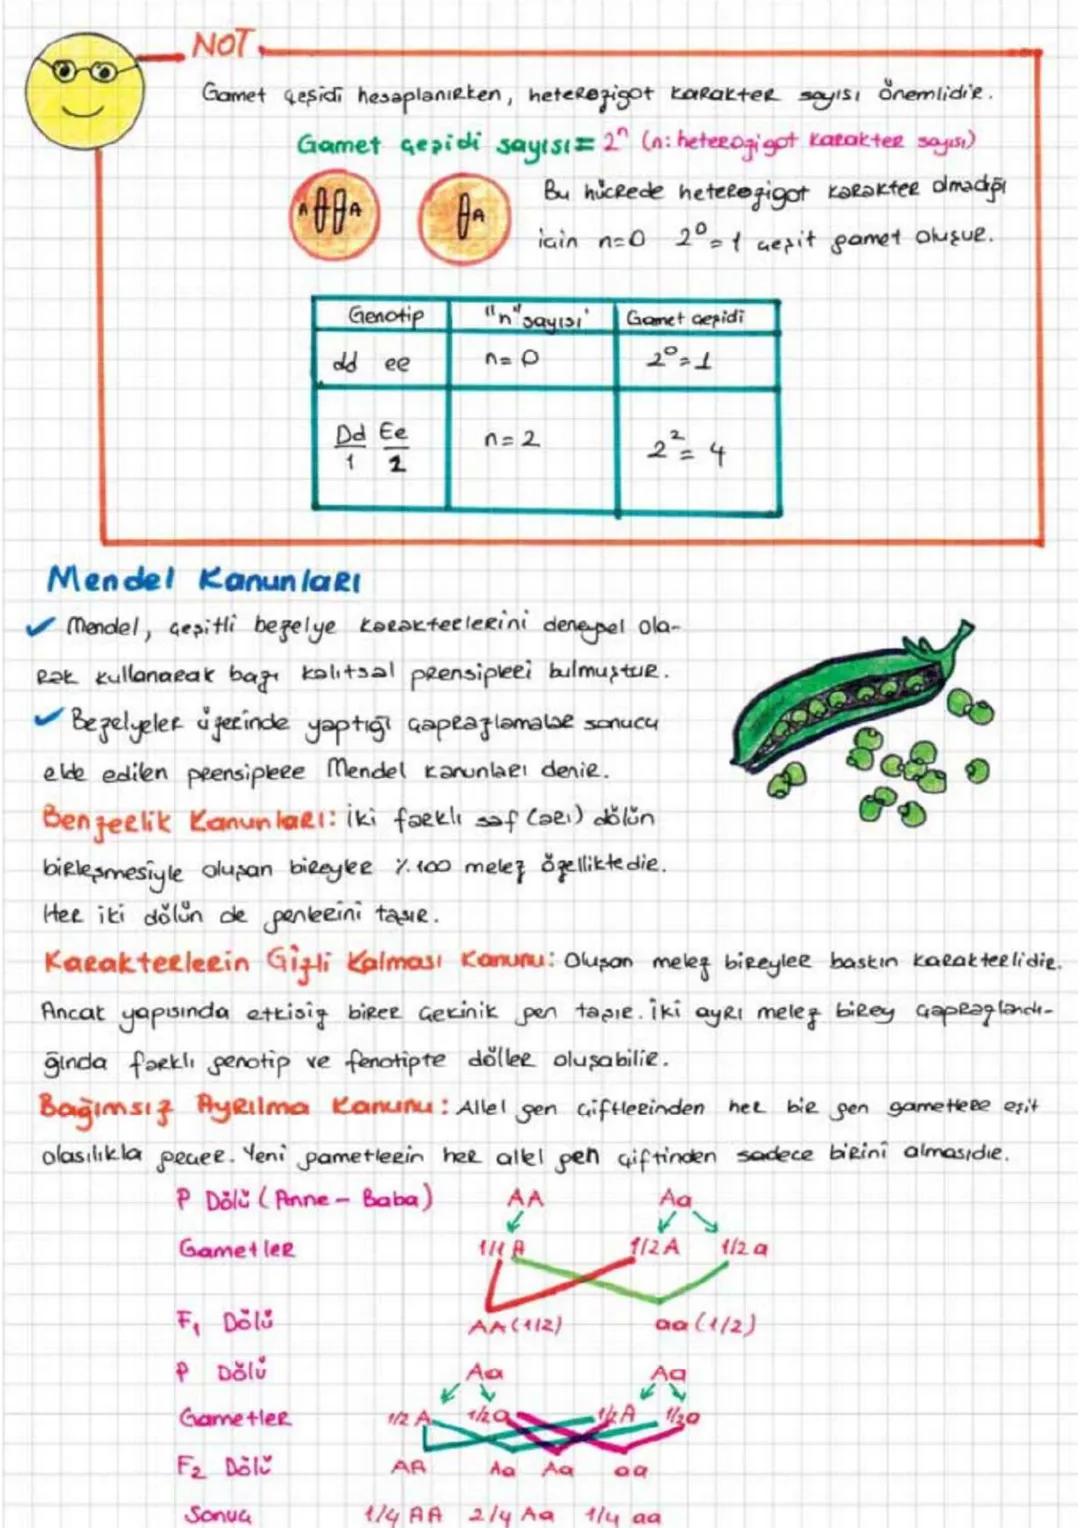 NOT
Gamet çeşidi hesaplanırken, heterozigot karakter sayısı önemlidir.
Gamet çeşidi sayısı = 2ⁿ (n: heterozigot karakter sayısı)
A A
A
Bu hücrede heterozigot karakter olmadığı
için n=0 2⁰=1 çeşit gamet oluşur.
Genotip "n" sayısı Gamet çeşidi
dd ee n=0 2⁰=1
Dd Ee n=2 2²=4
1 2
Mendel Kanunları
✓ Mendel, çeşitli bezelye karakterlerini deneysel ola-
rak kullanarak bazı kalıtsal prensipleri bulmuştur.
✓ Bezelyeler üzerinde yaptığı çaprazlamalar sonucu
elde edilen prensiplere Mendel kanunları denir.
Benzerlik Kanunları: İki farklı saf (arı) dölün
birleşmesiyle oluşan bireyler %100 melez özelliktedir.
Her iki dölün de genlerini taşır.
Karakterlerin Gizli Kalması Kanunu: Oluşan melez bireyler baskın karakterlidir.
Ancak yapısında etkisiz birer çekinik gen taşır. İki ayrı melez birey çaprazlandı-
ğında farklı genotip ve fenotipte döller oluşabilir.
Bağımsız Ayrılma Kanunu: Allel gen çiftlerinden her bir gen gametlere eşit
olasılıkla geçer. Yeni gametlerin her allel gen çiftinden sadece birini almasıdır.
P Dölü (Anne - Baba) AA Aa
Gametler 1/1 A 1/2 A 1/2 a
F₁ Dölü AA (1/2) aa (1/2)
P Dölü Aa Aa
Gametler 1/2 A 1/2 a 1/2 A 1/2 a
F₂ Dölü AA Aa Aa aa
Sonuç 1/4 AA 2/4 Aa 1/4 aa